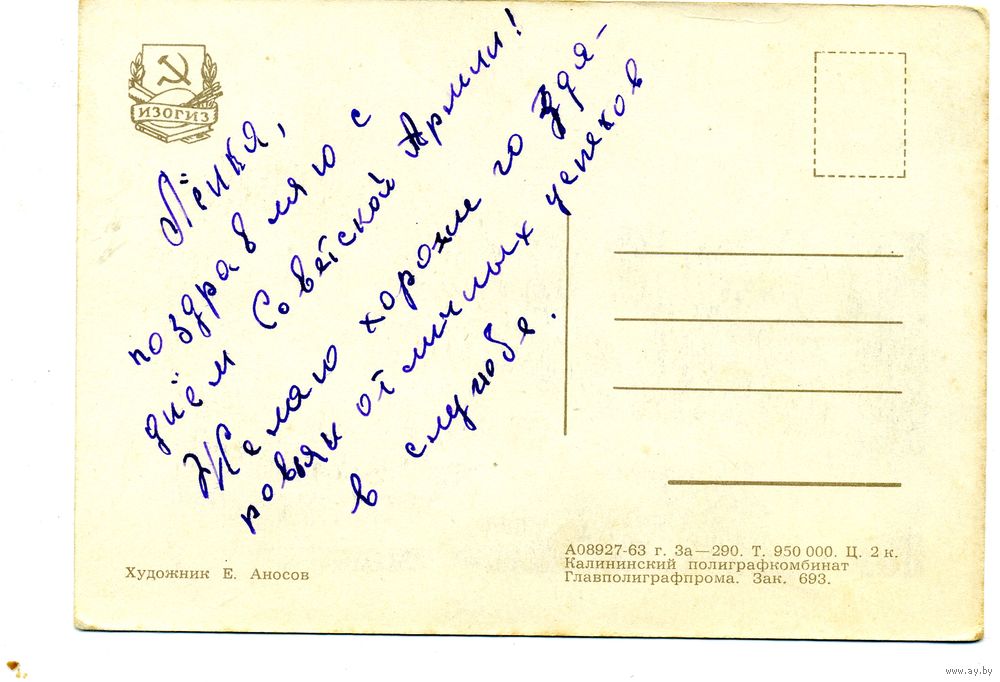 ИЗОГИЗ
Лёнка,
поздравляю с
днём Советской Армии!
Желаю хорошего здя-
ровья и отличных успехов
в службе.
Художник Е. Аносов
А08927-63 г. За—290. Т. 950 000. Ц. 2 к.
Калининский полиграфкомбинат
Главполиграфпрома. Зак. 693.
www.ay.by